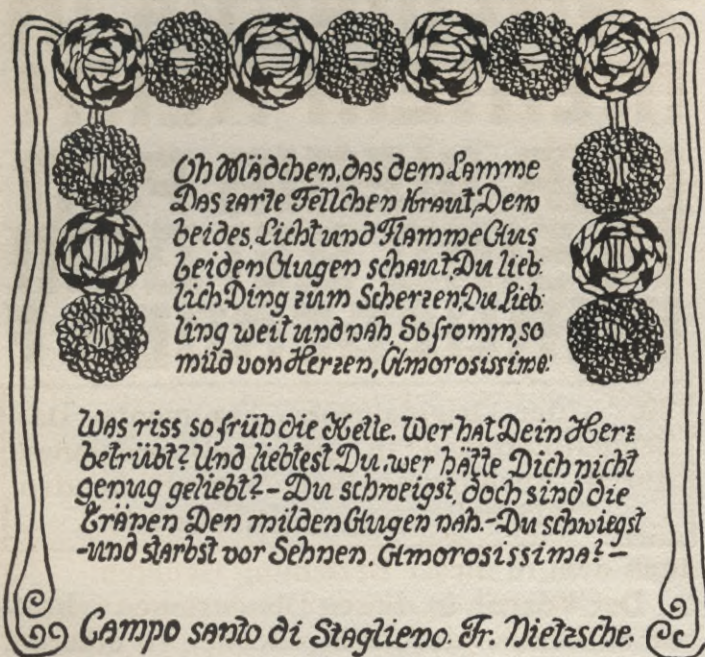 Oh Mädchen, das dem Lamme
Das zarte Fellchen kraut, Dem
beides, Licht und Flamme Aus
beiden Augen schaut, Du lieb:
lich Ding zum Scherzen, Du Lieb:
ling weit und nah, So fromm, so
müd von Herzen, Amorosissima:
Was riss so früh die Kette. Wer hat Dein Herz
betrübt? Und liebtest Du, wer hätte Dich nicht
genug geliebt? – Du schweigst, doch sind die
Tränen Den milden Augen nah. – Du schwiegst
– und starbst vor Sehnen, Amorosissima? –
Campo santo di Staglieno. Fr. Nietzsche.